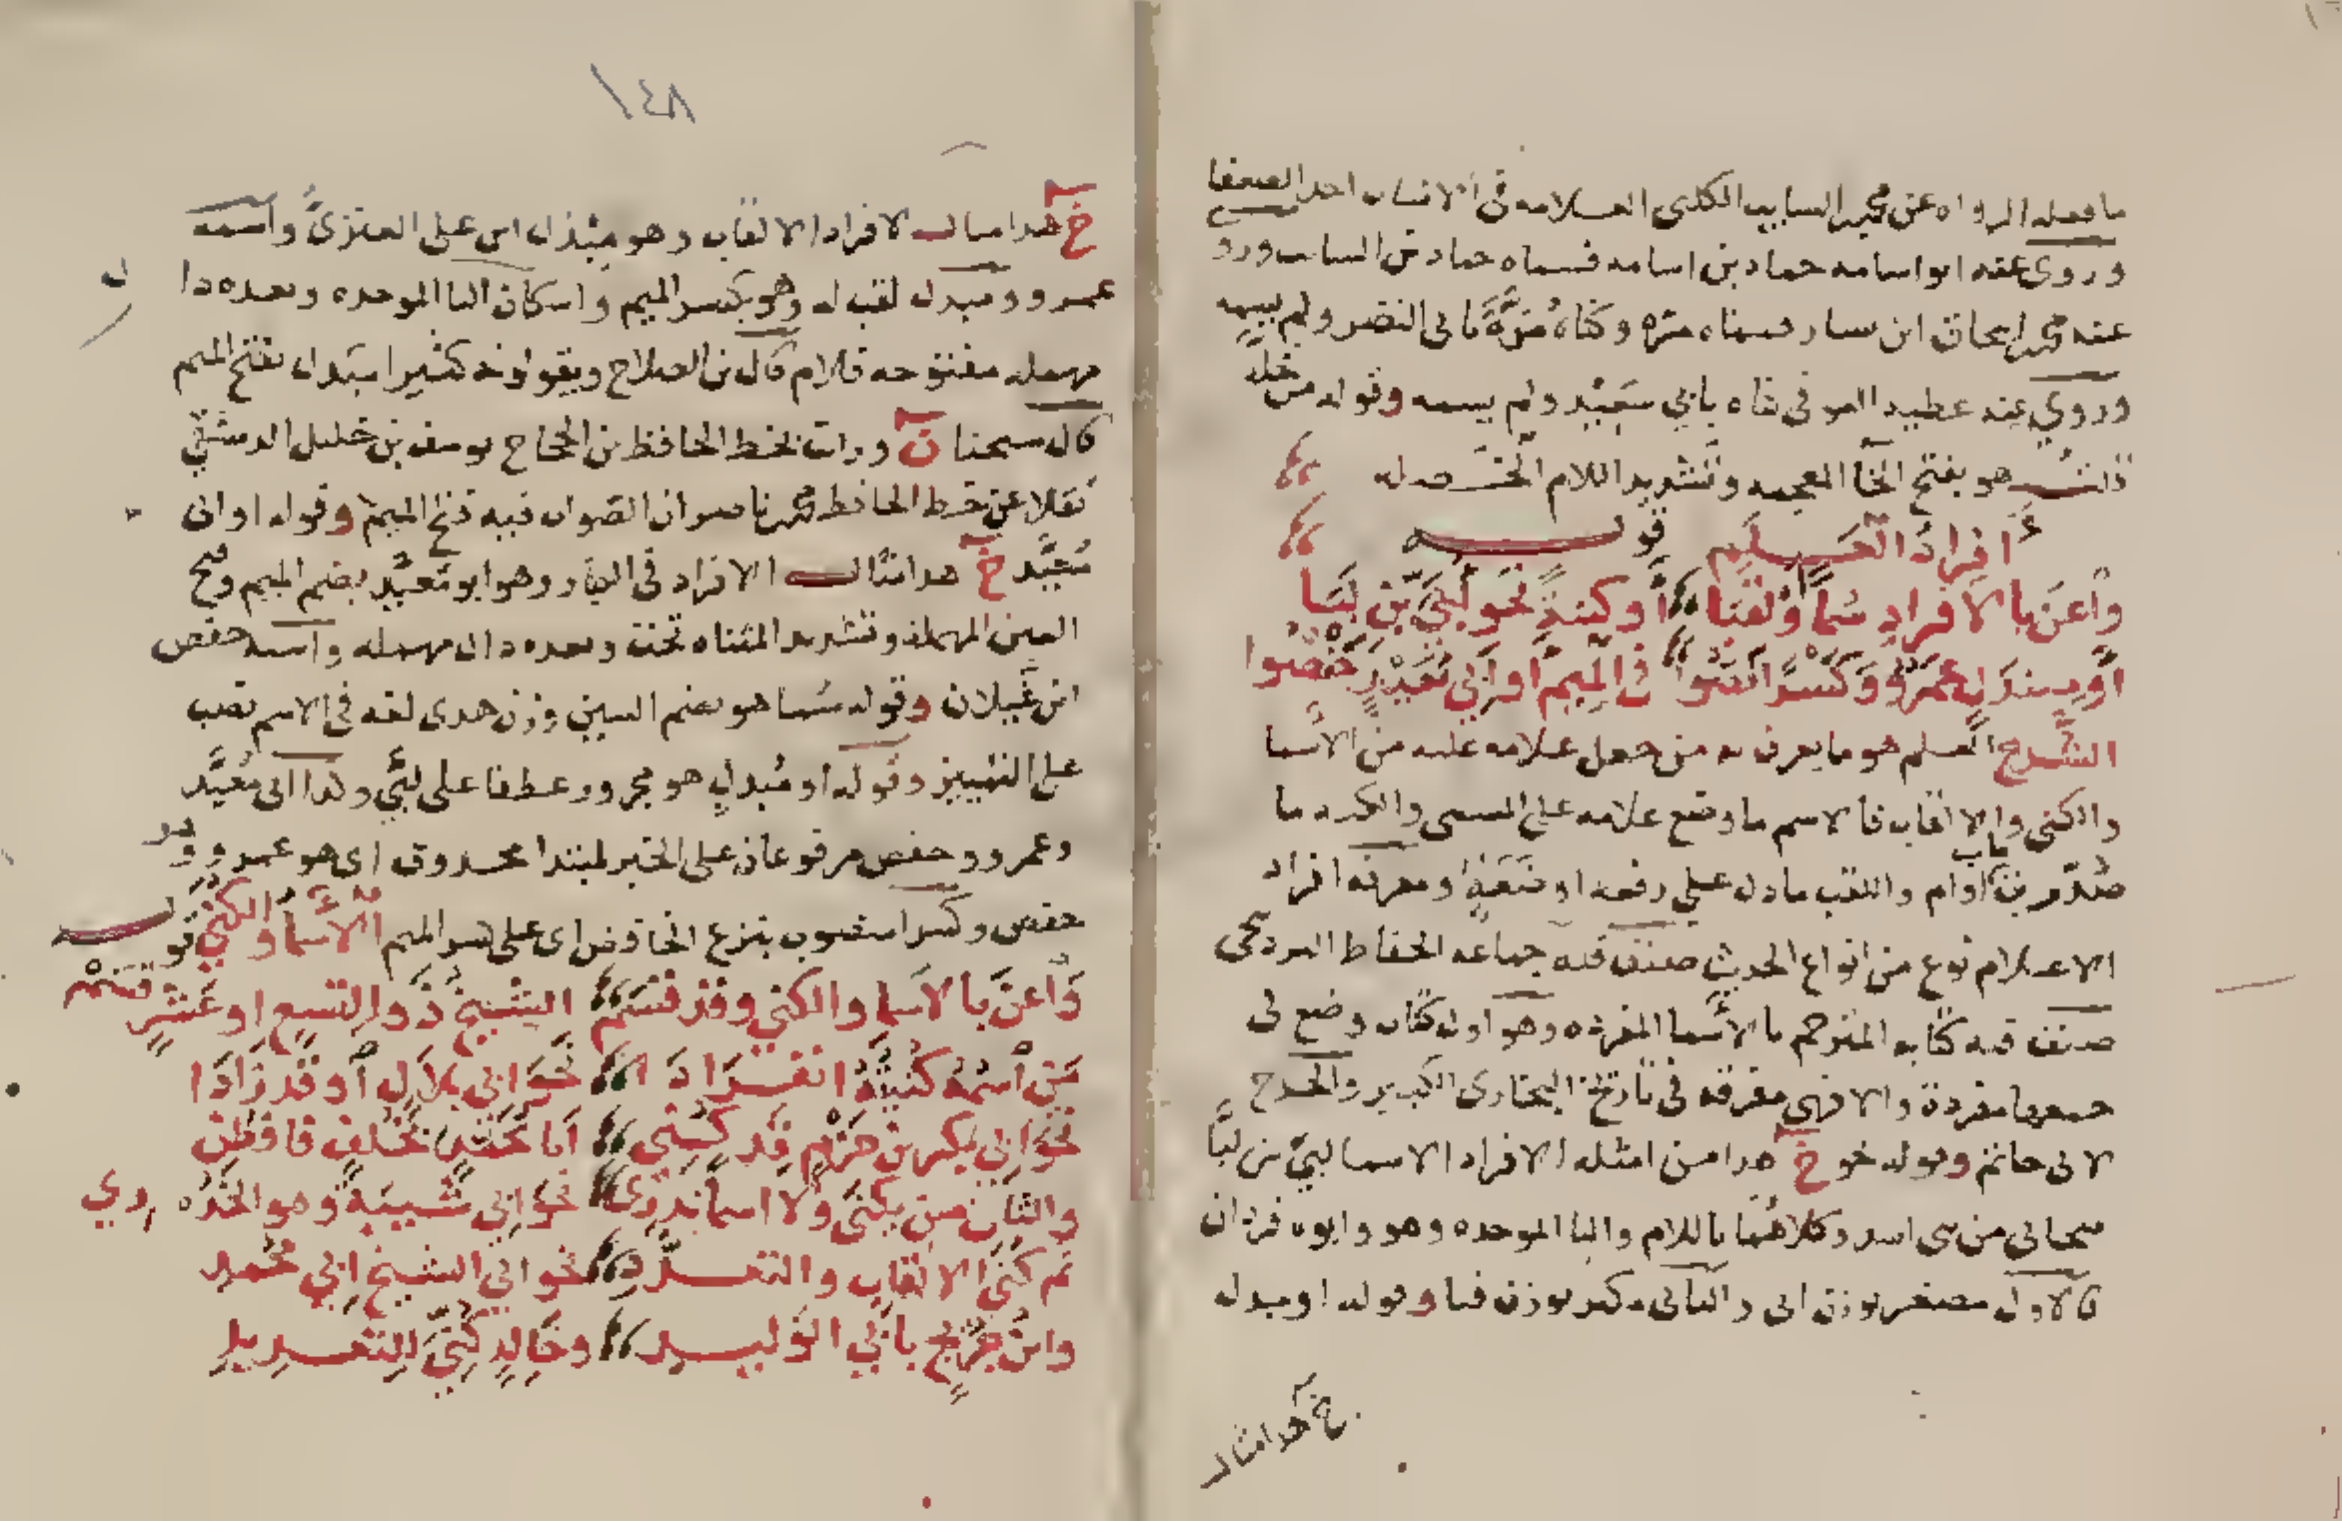 ما فعله الرواه عن محمد بن السايب الكلبي العلامه في الانساب احد الضعفا
وروي عنه ابو اسامه حماد بن اسامه فسماه حماد بن السايب ورو
عنه محمد بن اسحاق ابن يسار فسماه مره وكناه مَرَّةً بابي النضر ولم يسمه
وروي عنه عطيه العوفي فكناه بابي سَعِيْد ولم يسمه وقوله من خلة
قلت هو بفتح الخا المعجمه وتشديد اللام الخصله
أفراد العلم قوله
واعن بالافراد سُماً ولقبا أو كنيةً نحو لُبَيِّ بن لَبَا
أو مِندَلٍ عمرٌو وكسراً نصوا في الميم أو أبي مُعَيْدٍ حفصُ
الشرح العلم هو ما يعرف به من جعل علامه عليه من الاسما
والكنى والالقاب فالاسم ما وضع علامه على المسمى والكنيه ما
صُدِّر باب أو ام واللقب ما دل على رفعه او ضَعَةٍ ومعرفه افراد
الاعلام نوع من انواع الحديث صنف فيه جماعه الحفاظ البرديجي
صنف فيه كتابه المترجم بالأسما المفرده وهو اول كتاب وضع في
جمعها مفردة والا فهي مفرقه في تاريخ البخاري الكبير والجرح
لابي حاتم وقوله نحو خ هذا من امثله الافراد الاسما لبيّ بن لبَا
صحابي من بني اسد وكلاهما باللام والبا الموحده وهو وابوه فردان
فالاول مصغر بوزن ابي والثاني مكبر بوزن فتا وقوله او مندل
خ هذا مثال
٨٤١
خ هذا مثال لافراد الالقاب وهو مِنْدَل ابن علي العنزيّ واسمه
عمرو ومندل لقب له وهو بكسر الميم واسكان النا الموحده وبعده دا
مهمله مفتوحه فلام قال بن الصلاح ويقولونه كثيرا مَندل بفتح الميم
قال شيخنا ن ورايت بخط الحافظ بن الحجاج يوسف بن خليل الدمشقي
نقلا عن خط الحافظ محمد بن ناصر ان الصواب فيه فتح الميم وقوله او ابي
مُعَيْد خ هذا مثال الافراد في الكنى وهو ابو مُعَيْد بضم الميم وفتح
العين المهمله وتشديد المثناه تحت وبعده دال مهمله واسمه حفص
ابن غَيلان وقوله سُما هو بضم السين وزن هدى لغه في الاسم نصب
على التمييز وقوله او مندلٍ هو مجرور عطفا على لبَيِّ وكذا ابي مُعَيْد
وعمرو وحفص مرفوعان على الخبر لمبتدا محذوف اي هو عمرو وهو
حفص وكسرا منصوب بنزع الخافض اي على كسر الميم الأسما والكنى قوله
وَاعنَ بالاسما والكنى وقد قسم الشيخ ذَا لتسعٍ او عَشْرٍ قسم
مَن اسمُهُ كنيتُهُ انفرادَا نحوَ ابي بلالٍ أو قد زادَا
نحوَ ابي بكر بن حزْمٍ قد كُنِي أبا محمد بخُلفٍ فافطن
والثان من يكنى ولا اسماً ندري نحوَ ابي شيبةَ وهو الخدْ ري
ثم كُنَى الالقابِ والتعددِ نحوَ ابي الشيخ ابي محمدِ
وابنُ جُرَيجٍ بأبي الوليد وخالدٍ كُنِّيَ للتعديدِ